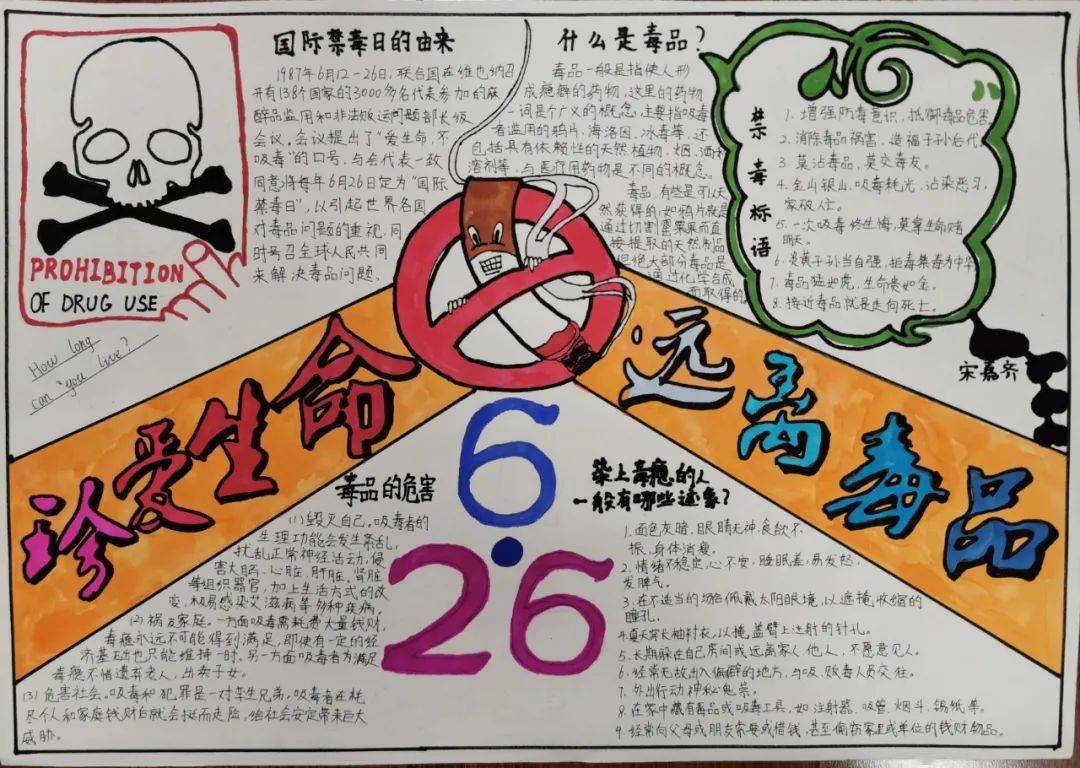 PROHIBITION
OF DRUG USE
How long
can you live?
国际禁毒日的由来
1987年6月12-26日,联合国在维也纳召
开有138个国家的3000多名代表参加的麻
醉品滥用和非法贩运问题部长级
会议。会议提出了“爱生命,不
吸毒”的口号,与会代表一致
同意将每年6月26日定为“国际
禁毒日”,以引起世界各国
对毒品问题的重视,同
时号召全球人民共同
来解决毒品问题。
什么是毒品?
毒品一般是指使人形
成瘾癖的药物,这里的药物
一词是个广义的概念,主要指吸毒
者滥用的鸦片、海洛因、冰毒等,还
包括具有依赖性的天然植物、烟、酒和
溶剂等,与医疗用药物是不同的概念。
毒品,有些是可以天
然获得的,如鸦片就是
通过切割罂粟果而直
接提取的天然制品
但绝大部分毒品是
通过化学合成
而取得的
禁毒标语
1. 增强防毒意识,抵御毒品危害
2. 消除毒品祸害,造福子孙后代
3. 莫沾毒品,莫交毒友。
4. 金山银山,吸毒耗光,沾染恶习,
家破人亡。
5. 一次吸毒终生悔,莫拿生命赌
明天。
6. 炎黄子孙当自强,拒毒禁毒为中华
7. 毒品猛如虎,生命贵如金。
8. 接近毒品就是走向死亡。
宋嘉齐
珍爱生命
远离毒品
6·26
毒品的危害
(1)毁灭自己。吸毒者的
生理功能会发生紊乱,
扰乱正常神经活动,侵
害大脑、心脏、肝脏、肾脏
等组织器官,加上生活方式的改
变,极易感染艾滋病等多种疾病。
(2)祸及家庭。一方面吸毒需耗费大量钱财,
毒瘾永远不可能得到满足,即使有一定的经
济基础也只能维持一时。另一方面吸毒者为满足
毒瘾不惜遗弃老人,出卖子女。
(3)危害社会。吸毒和犯罪是一对孪生兄弟。吸毒者在耗
尽个人和家庭钱财后就会铤而走险,给社会安定带来巨大
威胁。
染上毒瘾的人
一般有哪些迹象?
1. 面色灰暗、眼睛无神、食欲不
振、身体消瘦。
2. 情绪不稳定,心不安,睡眠差,易发怒,
发脾气。
3. 在不适当的场合佩戴太阳眼镜,以遮掩收缩的
瞳孔。
4. 夏天常长袖衬衣,以掩盖臂上注射的针孔。
5. 长期躲在自己房间或远离家人、他人,不愿意见人。
6. 经常无故出入偏僻的地方,与吸、贩毒人员交往。
7. 外出行动神秘鬼祟。
8. 在家中藏有毒品或吸毒工具,如注射器、吸管、烟斗、锡纸等。
9. 经常向父母或朋友索要或借钱,甚至偷窃家里或单位的钱财物品。